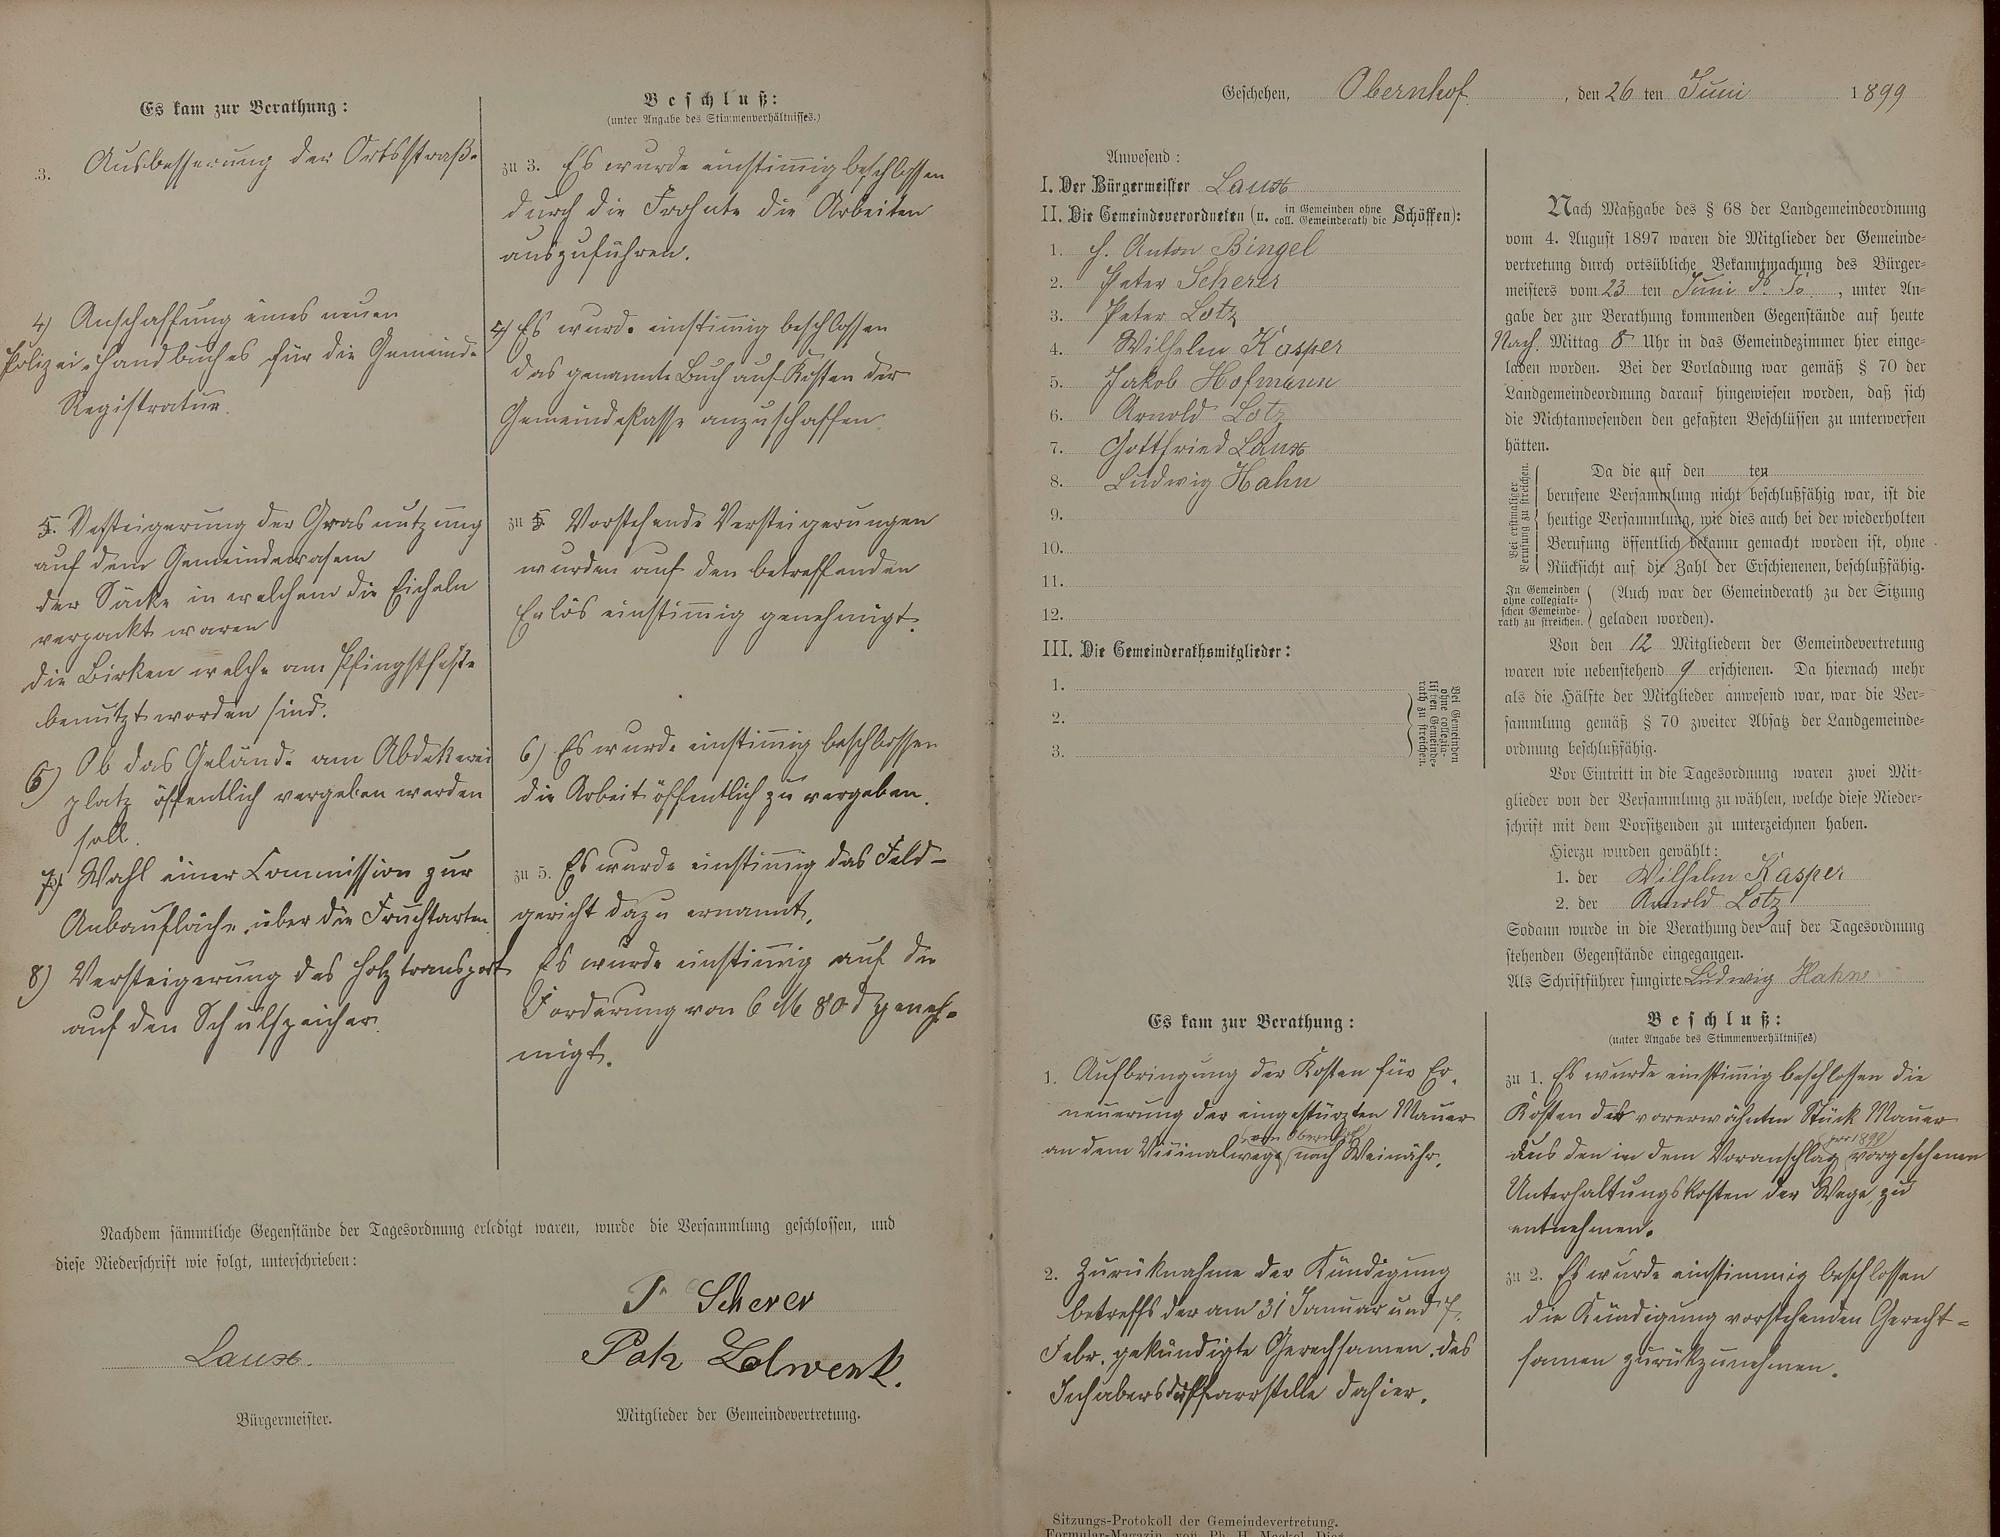 Es kam zur Berathung:
3. Ausbesserung der Ortsstraße
4) Anschaffung eines neuen
Polizei-Handbuches für die Gemeinde
Registratur.
5. Versteigerung der Grasnutzung
auf dem Gemeinderasem
der Säcke in welchem die Eicheln
verpackt waren
die Birken welche am Pfingstfeste
benutzt worden sind.
6) Ob das Gelände am Abdekerei
platz öffentlich vergeben werden
soll.
7) Wahl einer Commission zur
Anbaufläche über die Fruchtarten
8) Versteigerung des Holztransport
auf den Schulspeicher
Beschluß:
(unter Angabe des Stimmenverhältnisses.)
zu 3. Es wurde einstimmig beschlossen
durch die Frohnte die Arbeiten
auszuführen.
4) Es wurde einstimmig beschlossen
das genannte Buch auf Kosten der
Gemeindekasse anzuschaffen
zu 5 Vorstehende Versteigerungen
wurden auf den betreffenden
Erlös einstimmig genehmigt.
6) Es wurde einstimmig beschlossen
die Arbeit öffentlich zu vergeben.
zu 5. Es wurde einstimmig das Feld-
gericht dazu ernannt.
Es wurde einstimmig auf die
Forderung von 6 M 80 d geneh-
migt.
Nachdem sämmtliche Gegenstände der Tagesordnung erledigt waren, wurde die Versammlung geschlossen, und
diese Niederschrift wie folgt, unterschrieben:
P. Scherer
Laux.
Bürgermeister.
Mitglieder der Gemeindevertretung.
Geschehen, Obernhof, den 26 ten Juni 1899
Anwesend:
I. Der Bürgermeister Laux
II. Die Gemeindeverordneten (u. in Gemeinden ohne coll. Gemeinderath die Schöffen):
1. H. Anton Bingel
2. Peter Scherer
3. Peter Lotz
4. Wilhelm Kasper
5. Jakob Hofmann
6. Arnold Lotz
7. Gottfried Laux
8. Ludwig Hahn
9.
10.
11.
12.
III. Die Gemeinderathsmitglieder:
1.
2.
3.
Bei Gemeinden
ohne collegia-
lischen Gemeinde-
rath zu streichen.
Nach Maßgabe des § 68 der Landgemeindeordnung
vom 4. August 1897 waren die Mitglieder der Gemeinde-
vertretung durch ortsübliche Bekanntmachung des Bürger-
meisters vom 23 ten Juni d. Js., unter An-
gabe der zur Berathung kommenden Gegenstände auf heute
Nach. Mittag 8 Uhr in das Gemeindezimmer hier einge-
laden worden. Bei der Vorladung war gemäß § 70 der
Landgemeindeordnung darauf hingewiesen worden, daß sich
die Nichtanwesenden den gefaßten Beschlüssen zu unterwerfen
hätten.
Bei erstmaliger
Berufung zu streichen.
Da die auf den ten
berufene Versammlung nicht beschlußfähig war, ist die
heutige Versammlung, wie dies auch bei der wiederholten
Berufung öffentlich bekannt gemacht worden ist, ohne
Rücksicht auf die Zahl der Erschienenen, beschlußfähig.
In Gemeinden
ohne collegiali-
schen Gemeinde-
rath zu streichen.
(Auch war der Gemeinderath zu der Sitzung
geladen worden).
Von den 12 Mitgliedern der Gemeindevertretung
waren wie nebenstehend 9 erschienen. Da hiernach mehr
als die Hälfte der Mitglieder anwesend war, war die Ver-
sammlung gemäß § 70 zweiter Absatz der Landgemeinde-
ordnung beschlußfähig.
Vor Eintritt in die Tagesordnung waren zwei Mit-
glieder von der Versammlung zu wählen, welche diese Nieder-
schrift mit dem Vorsitzenden zu unterzeichnen haben.
Hierzu wurden gewählt:
1. der Wilhelm Kasper
2. der Arnold Lotz
Sodann wurde in die Berathung der auf der Tagesordnung
stehenden Gegenstände eingegangen.
Als Schriftführer fungirte Ludwig Hahn
Es kam zur Berathung:
1. Aufbringung der Kosten für Er-
neuerung der eingestürzten Mauer
an dem Vicinalwege (von Obernhof) nach Weinähr.
2. Zurüknahme der Kündigung
betreffs der am 31 Januar und 7.
Febr. gekündigte Gerechsamen des
Inhabers d. Pfarrstelle dahier.
Beschluß:
(unter Angabe des Stimmenverhältnisses)
zu 1. Es wurde einstimmig beschlossen die
Kosten der vorerwähnten Stück Mauer
aus den in dem Voranschlag (pro 1899) vorgesehenen
Unterhaltungskosten der Wege zu
entnehmen.
zu 2. Es wurde einstimmig beschlossen
die Kündigung vorstehenden Gerecht-
samen zurükzunehmen.
Sitzungs-Protokoll der Gemeindevertretung.
Formular-Magazin von Ph. H. Meckel, Diez